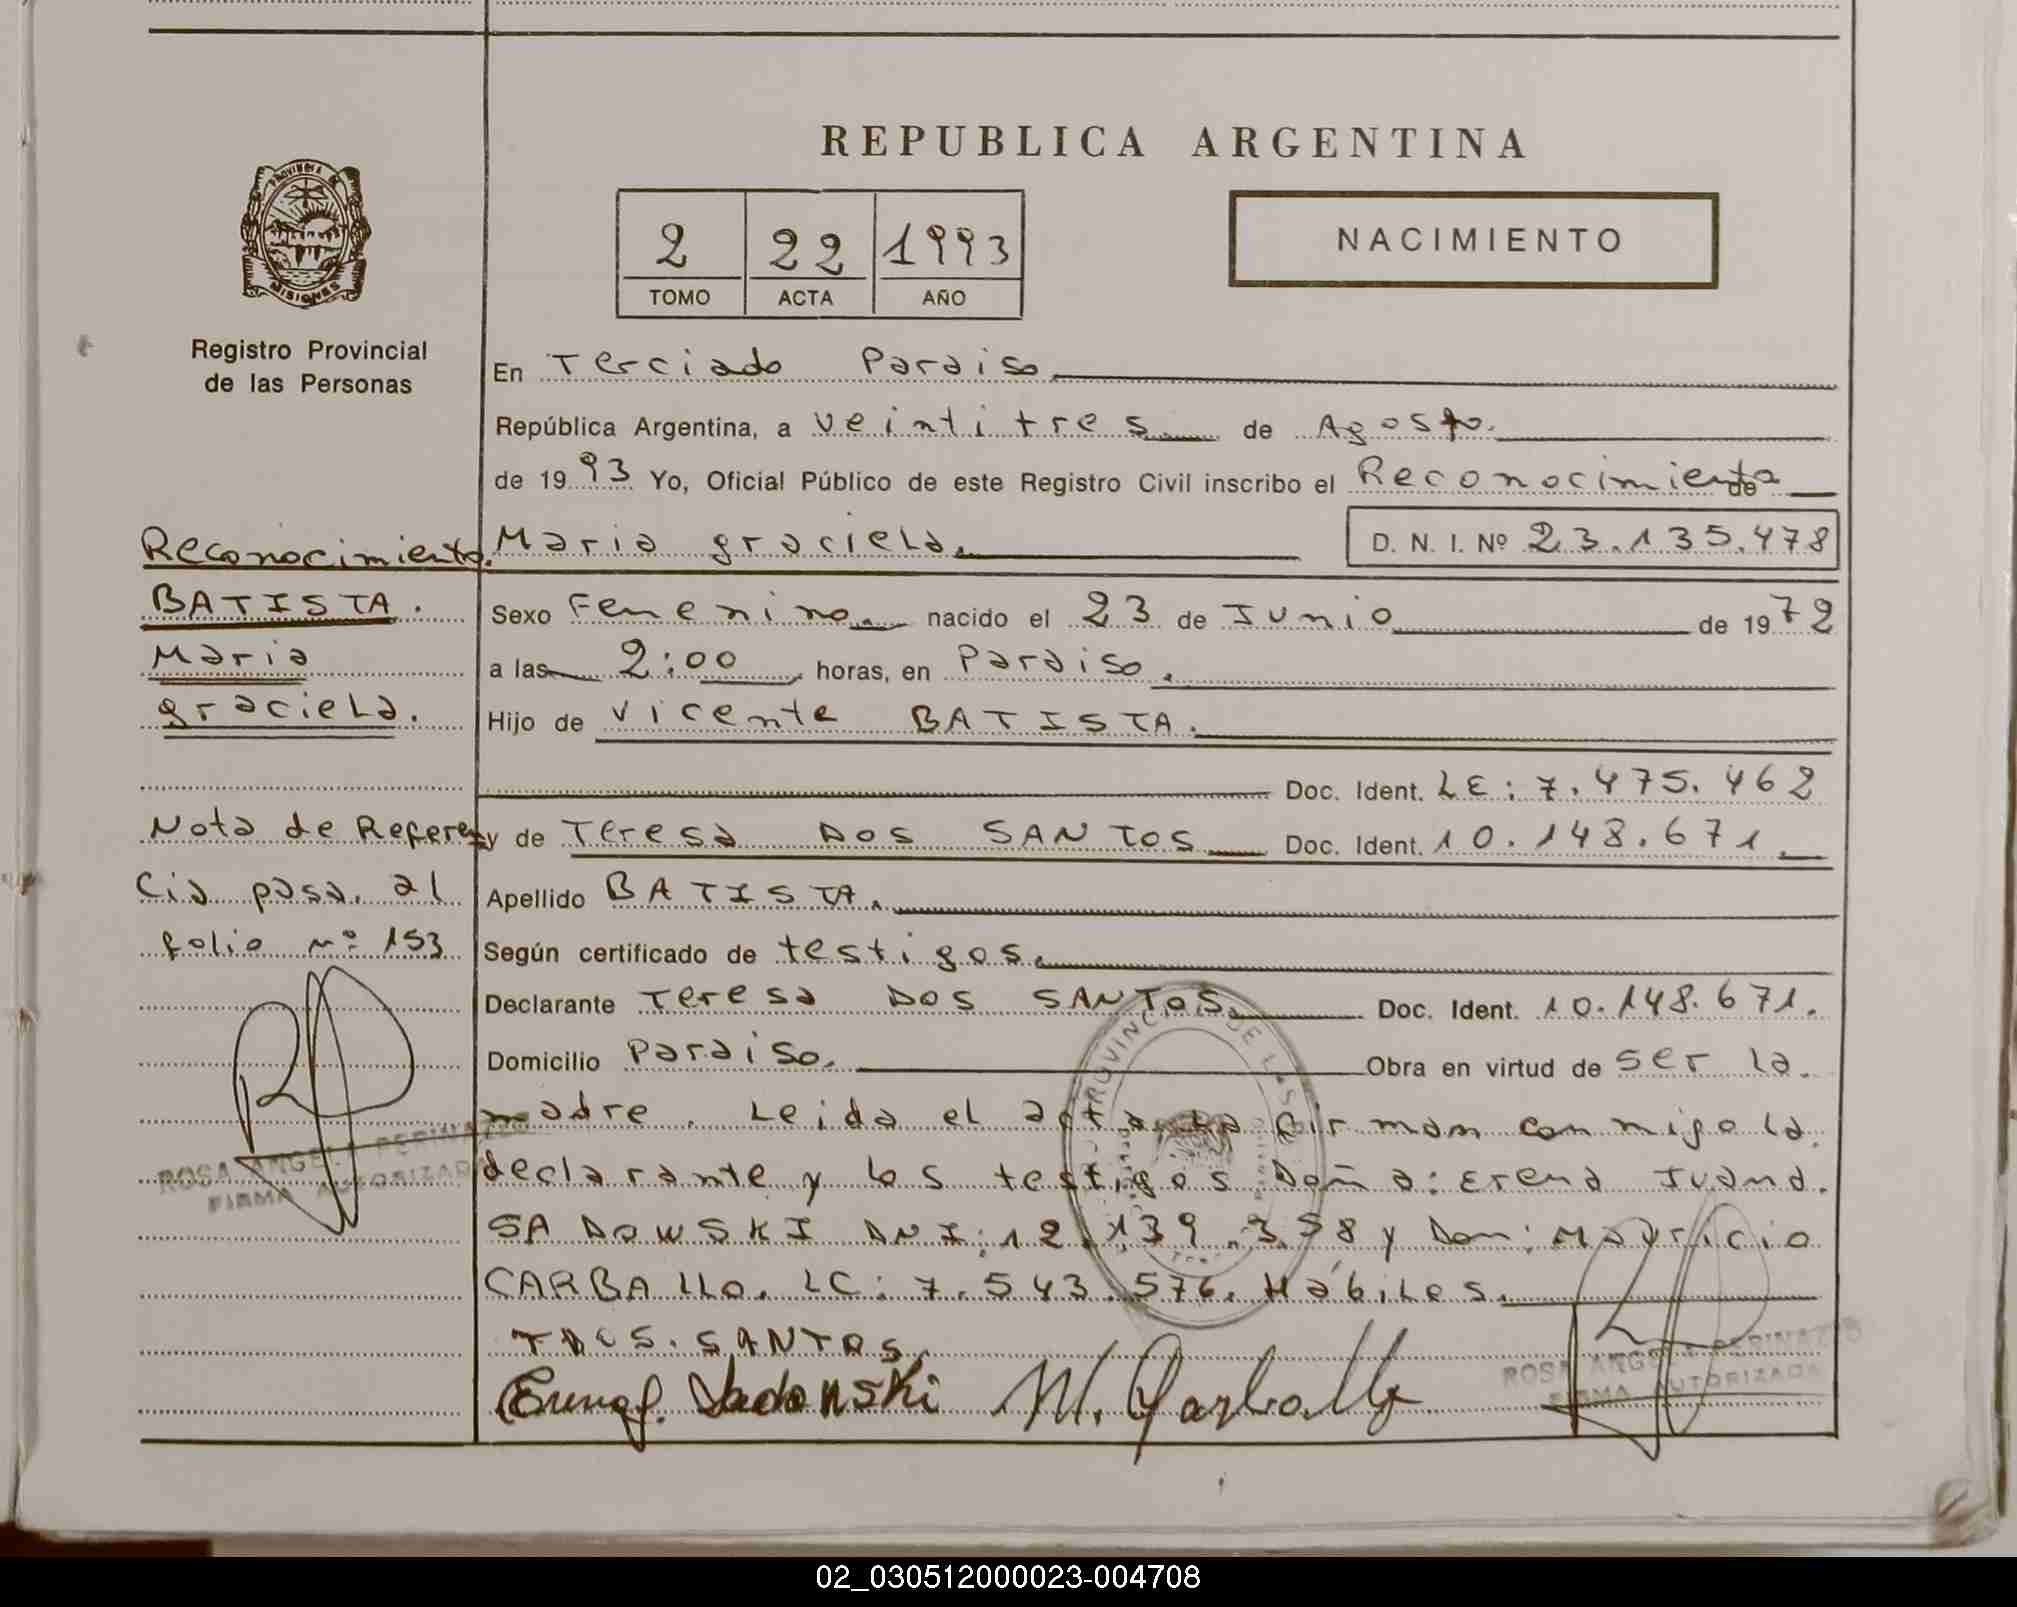 REPUBLICA ARGENTINA
PROVINCIA DE
MISIONES
Registro Provincial
de las Personas
2 22 1993
TOMO ACTA AÑO
NACIMIENTO
En Terciado Paraiso
República Argentina, a veintitres de Agosto.
de 1993 Yo, Oficial Público de este Registro Civil inscribo el Reconocimiento de
Maria graciela. D. N. I. Nº 23.135.478
Sexo Femenino. nacido el 23 de Junio de 1972
a las 2:00 horas, en Paraiso.
Hijo de Vicente BATISTA.
Doc. Ident. LE: 7.475.462
y de Teresa DOS SANTOS Doc. Ident. 10.148.671
Apellido BATISTA.
Según certificado de testigos.
Declarante Teresa DOS SANTOS. Doc. Ident. 10.148.671.
Domicilio Paraiso. Obra en virtud de ser la
madre. Leida el acta la firman conmigo la
declarante y los testigos Doña: Erena Juana.
SADOWSKI DNI: 12.139.358 y Don: Mauricio
CARBALLO. LC: 7.543.576. Hábiles.
T DOS. SANTOS
Sadowski M. Carballo
ROSA ANGELA PERINAZZO
FIRMA AUTORIZADA
Reconocimiento.
BATISTA.
Maria
graciela.
Nota de Referen
cia pasa. al
folio nº 153
ROSA ANGELA PERINAZZO
FIRMA AUTORIZADA
02_030512000023-004708